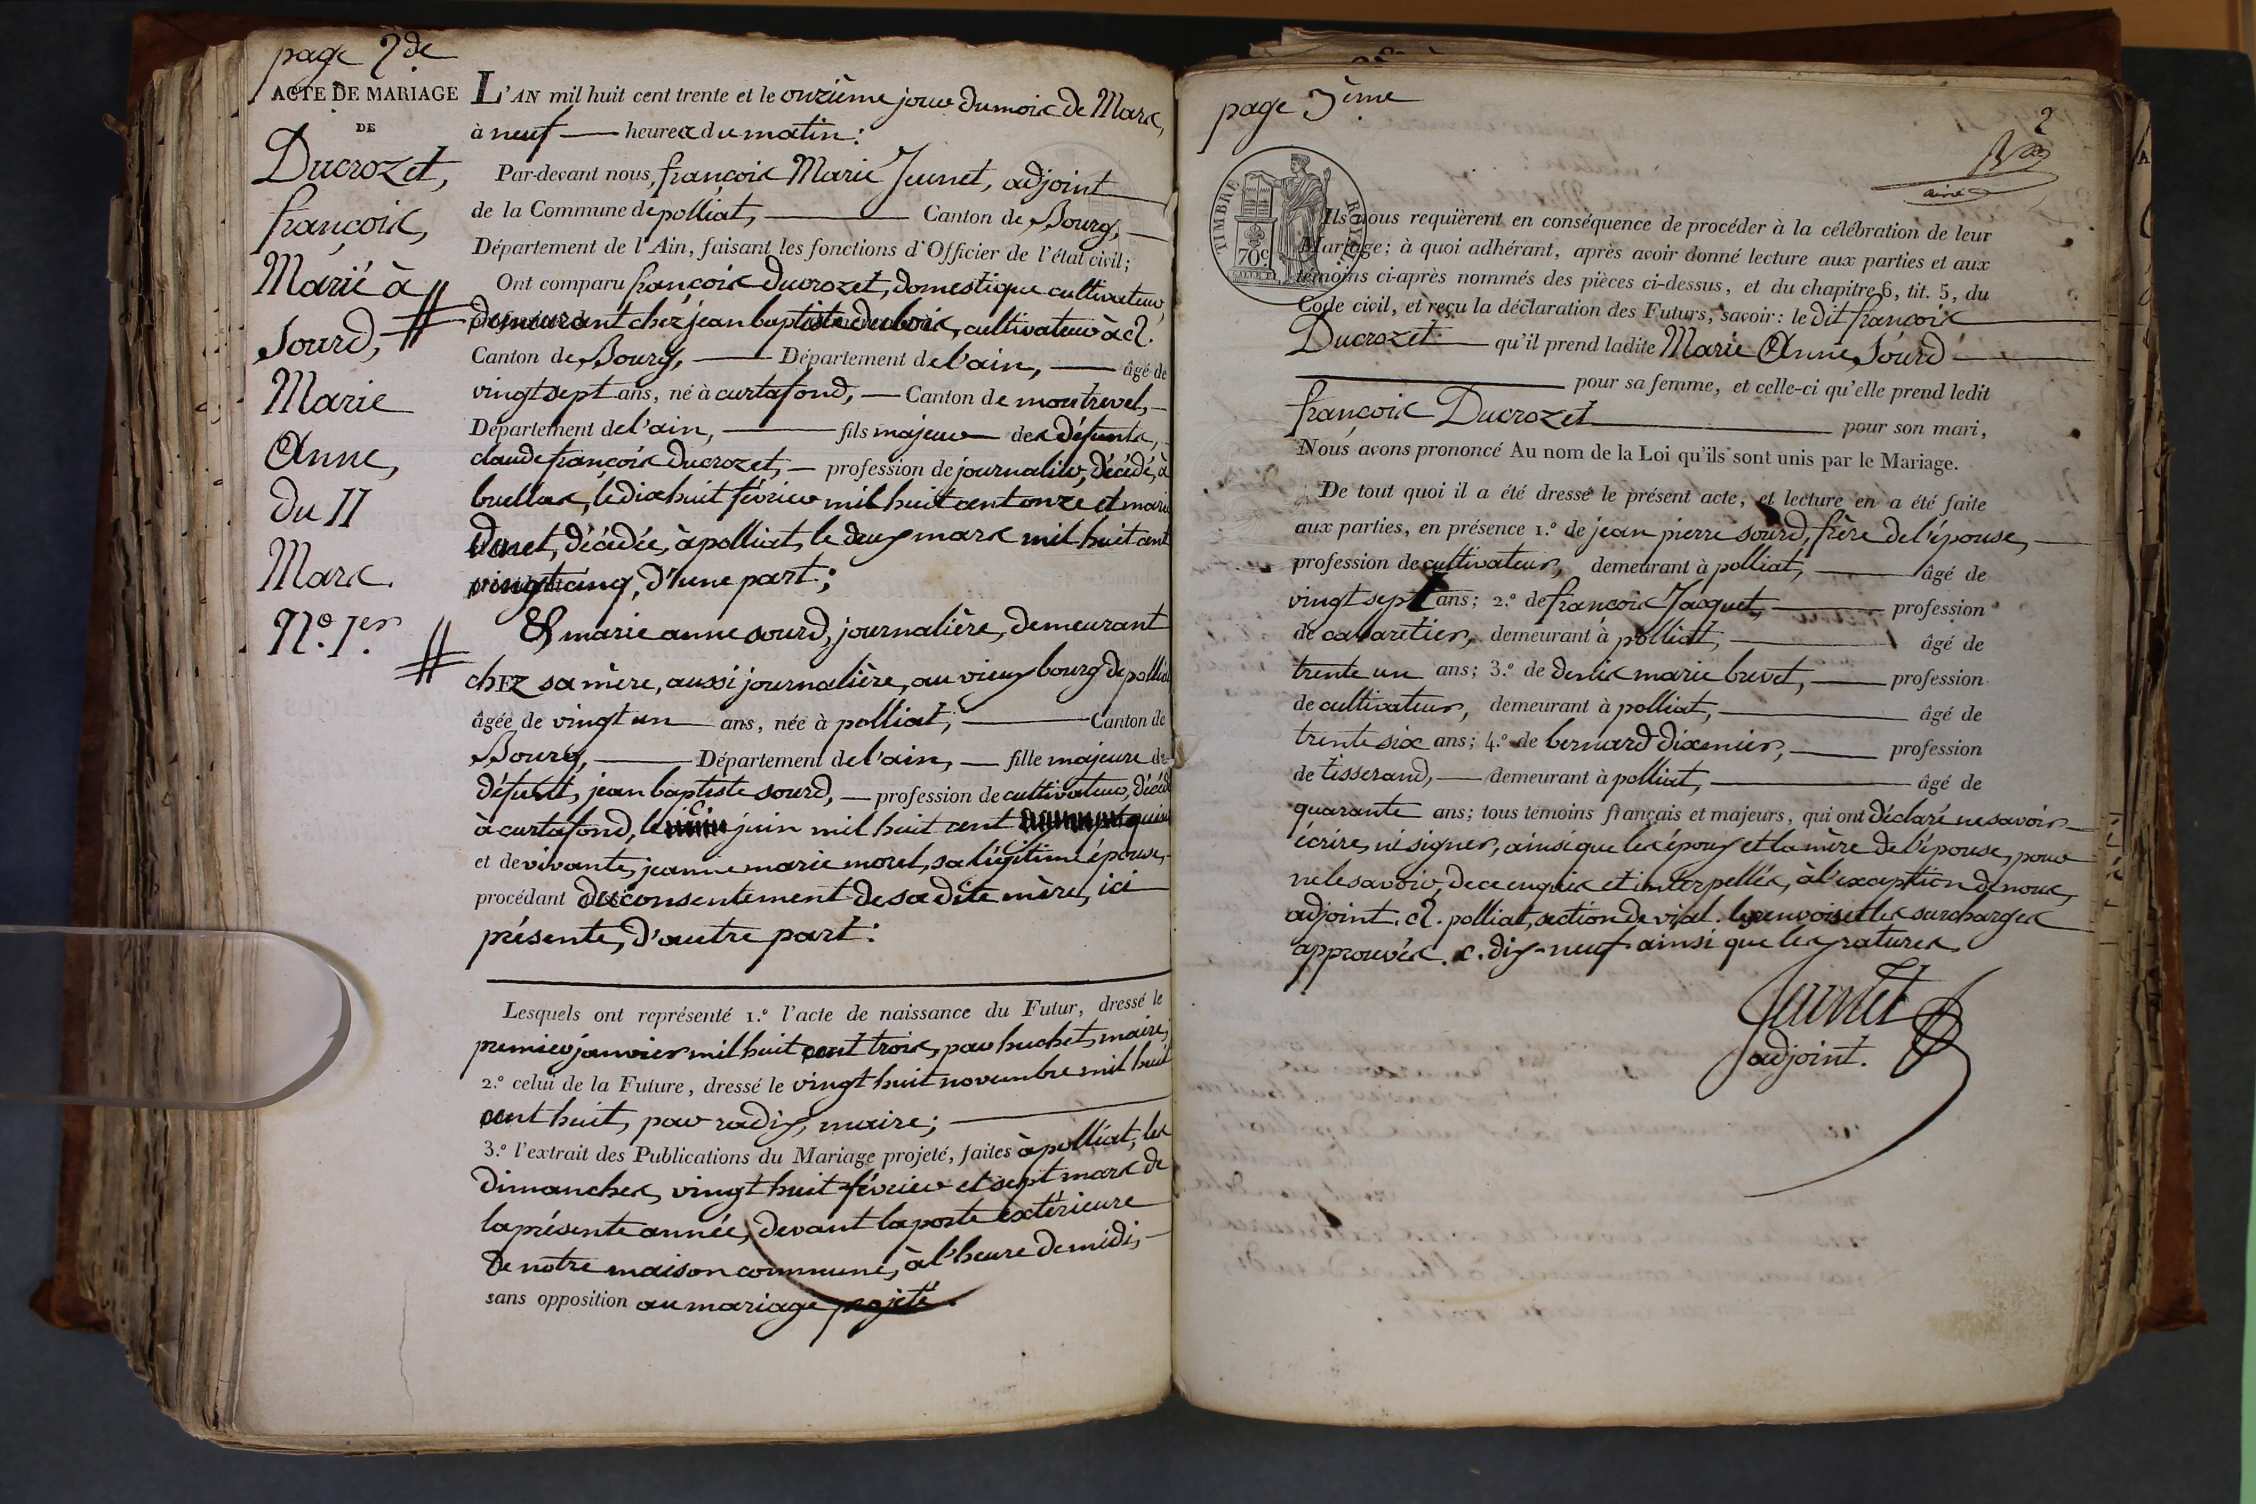 page 2de
ACTE DE MARIAGE
DE
Ducrozet,
françois,
Marié à
Sourd,
Marie
Anne,
du 11
Mars.
N.º 1er.
L'AN mil huit cent trente et le onzième jour du mois de Mars,
à neuf heures du matin:
Par-devant nous, françois Marie Jeunet, adjoint
de la Commune de polliat, Canton de Bourg,
Département de l'Ain, faisant les fonctions d'Officier de l'état civil;
Ont comparu françois ducrozet, domestique cultivateur,
demeurant chez jean baptiste dubois, cultivateur à cl.
Canton de Bourg, Département de l'ain, âgé de
vingt sept ans, né à curtafond, Canton de montrevel,
Département de l'ain, fils majeur des défunts,
claude françois ducrozet, profession de journalier, décédé, à
buellas, le dix huit février mil huit cent onze et marie
décédée, à polliat, le deux mars mil huit cent
vingt cinq, d'une part;
Et marie anne sourd, journalière, demeurant
chez sa mère, aussi journalière, au vieux bourg de polliat
âgée de vingt un ans, née à polliat, Canton de
Bourg, Département de l'ain, fille majeure de
défunt, jean baptiste sourd, profession de cultivateur, décédé
à curtafond, le juin mil huit cent quinze
et de vivante, jeanne marie morel, sa légitime épouse,
procédant du consentement de sa dite mère, ici
présente, d'autre part:
Lesquels ont représenté 1.º l'acte de naissance du Futur, dressé le
premier janvier mil huit cent trois, par huchet, maire;
2.º celui de la Future, dressé le vingt huit novembre mil huit
cent huit, par radix, maire;
3.º l'extrait des Publications du Mariage projeté, faites à polliat, les
dimanches, vingt huit février et sept mars de
la présente année, devant la porte extérieure
de notre maison commune, à l'heure de midi,
sans opposition au mariage projeté.
page 3ème
2
ainé
TIMBRE ROYAL
70c.
Ils nous requièrent en conséquence de procéder à la célébration de leur
Mariage; à quoi adhérant, après avoir donné lecture aux parties et aux
témoins ci-après nommés des pièces ci-dessus, et du chapitre 6, tit. 5, du
Code civil, et reçu la déclaration des Futurs, savoir: le dit françois
Ducrozet qu'il prend ladite Marie Anne Sourd
pour sa femme, et celle-ci qu'elle prend ledit
françois Ducrozet pour son mari,
Nous avons prononcé Au nom de la Loi qu'ils sont unis par le Mariage.
De tout quoi il a été dressé le présent acte, et lecture en a été faite
aux parties, en présence 1.º de jean pierre sourd, frère de l'épouse,
profession de cultivateur, demeurant à polliat, âgé de
vingt sept ans; 2.º de françois Jacquet, profession
de cabaretier, demeurant à polliat, âgé de
trente un ans; 3.º de denis marie brevet, profession
de cultivateur, demeurant à polliat, âgé de
trente six ans; 4.º de bernard dixmier, profession
de tisserand, demeurant à polliat, âgé de
quarante ans; tous témoins français et majeurs, qui ont déclaré ne savoir
écrire, ni signer, ainsi que les époux et la mère de l'épouse, pour
ne le savoir, de ce enquis et interpellés, à l'exception de nous,
adjoint. cl. polliat, section de vial. les renvois et les surcharges
approuvés. c. dix-neuf ainsi que les ratures.
Jeunet
adjoint.